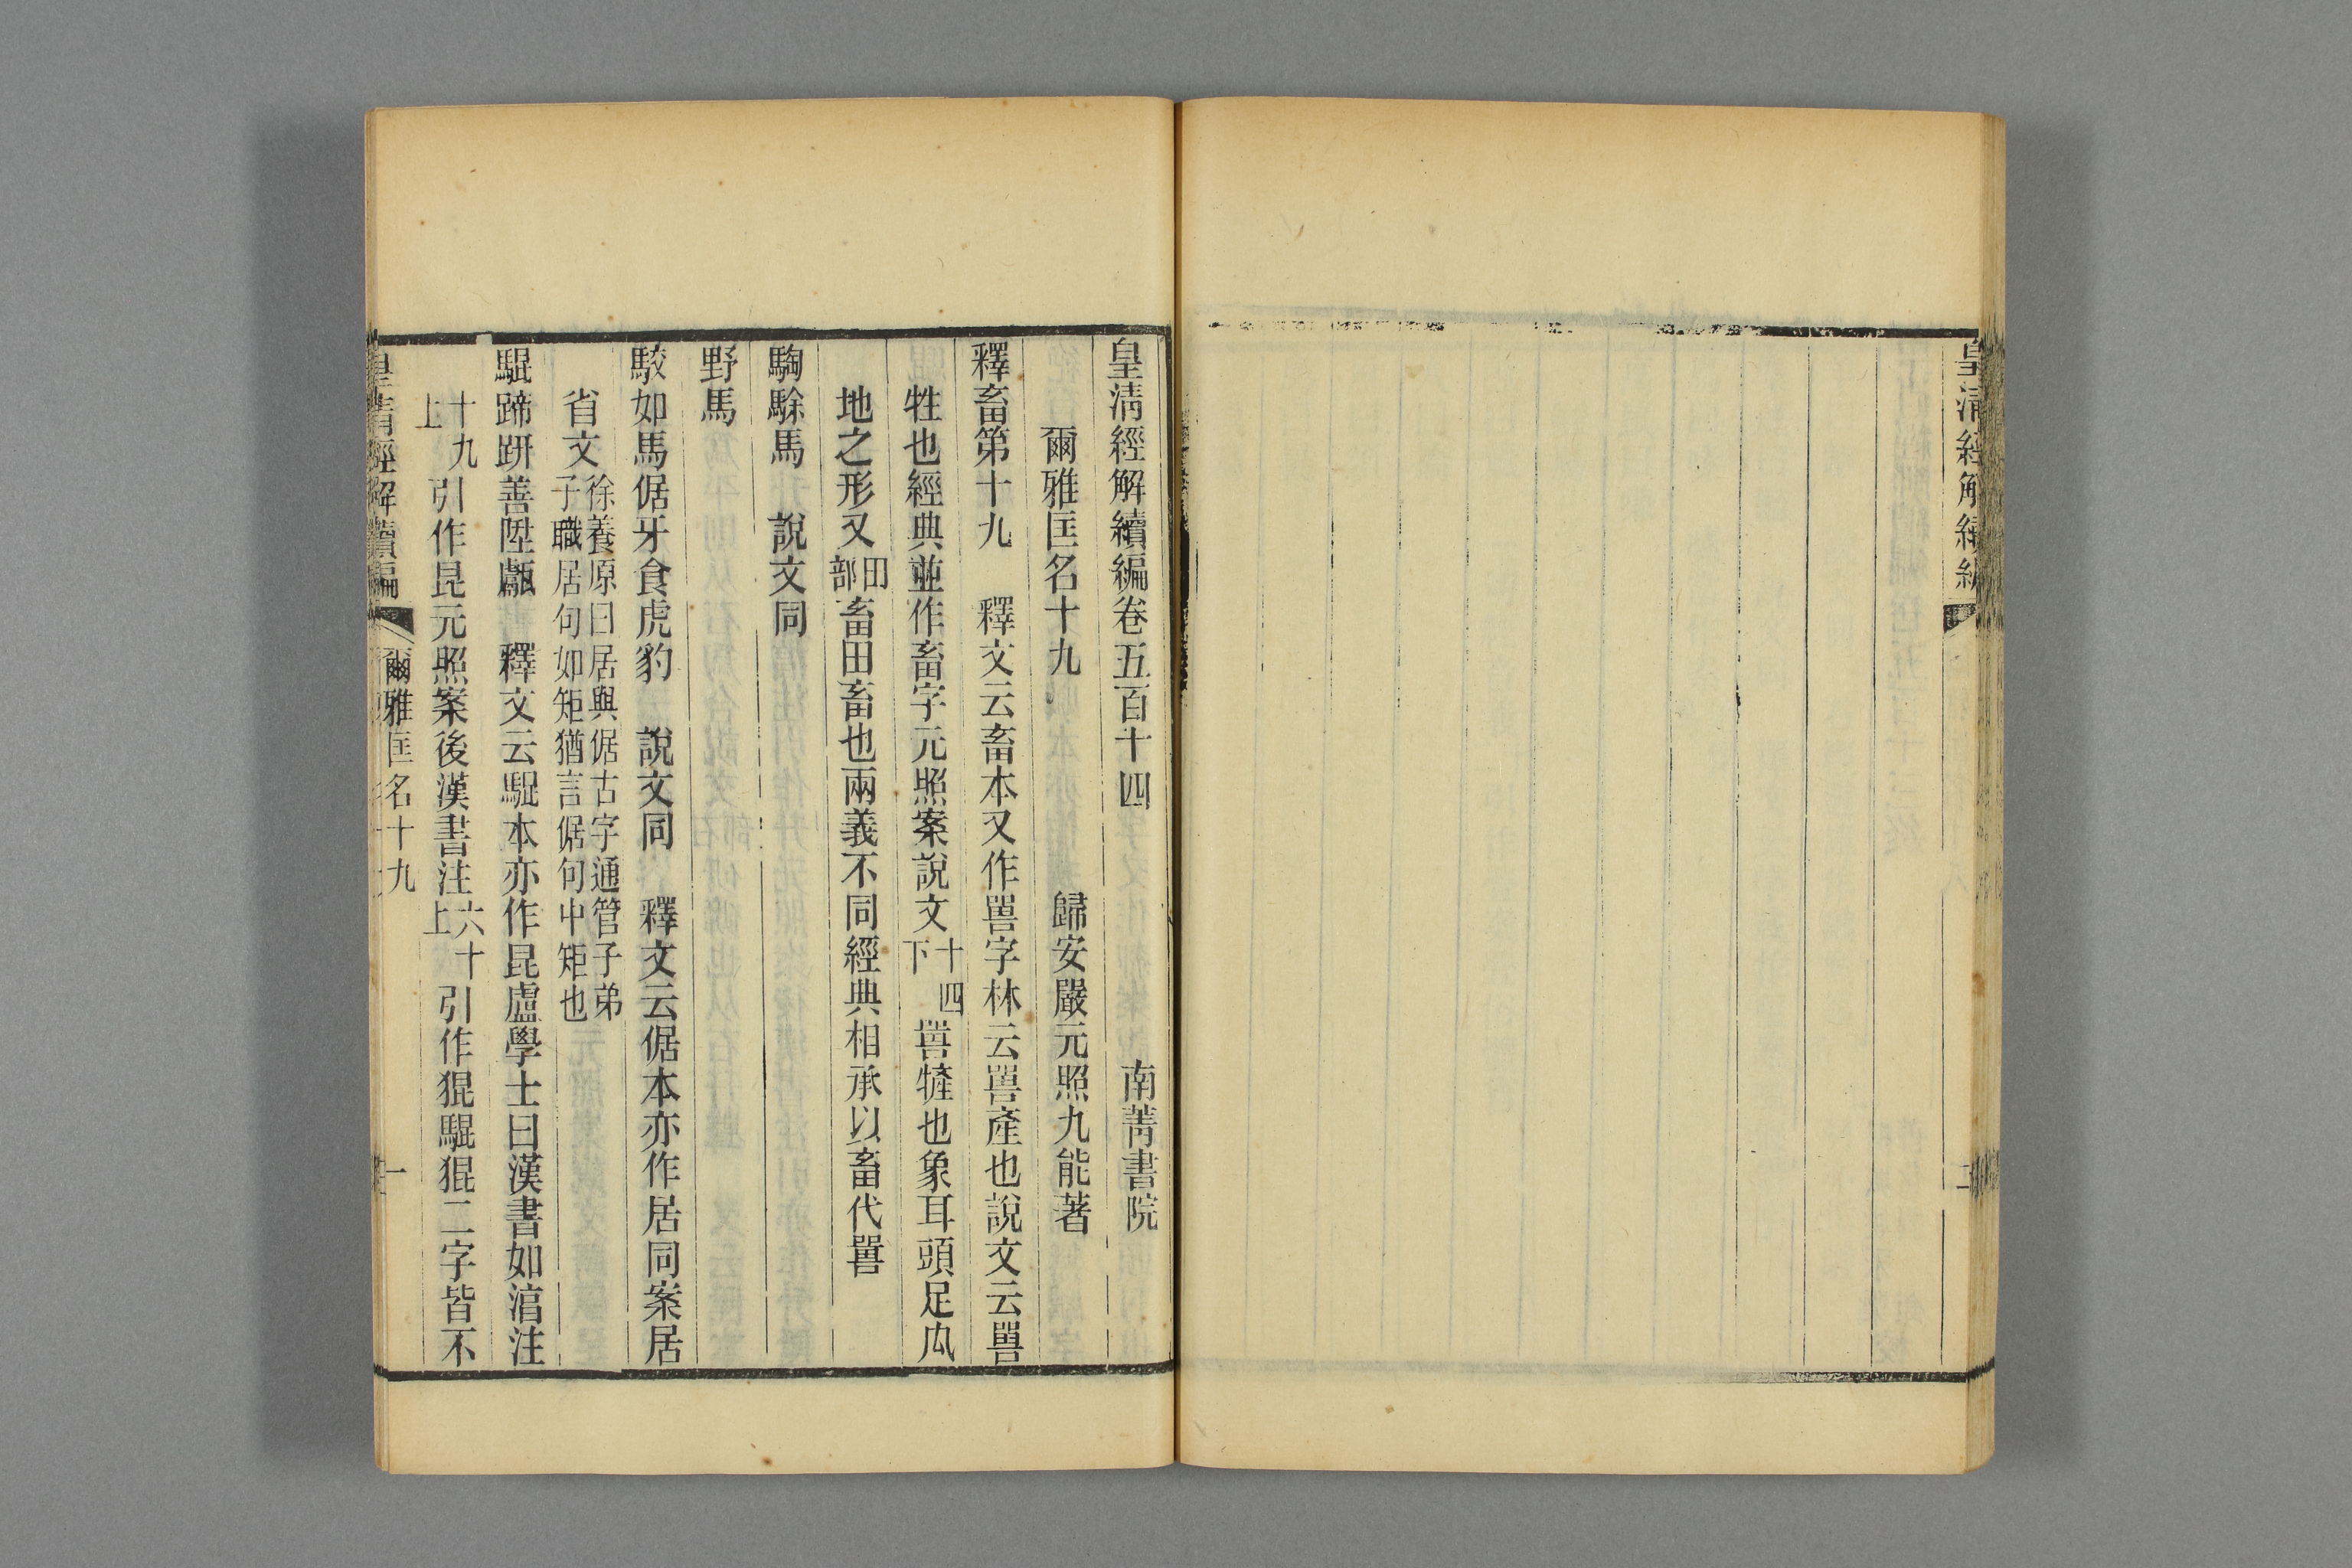 皇清經解續編
二
皇清經解續編卷五百十四　南菁書院
爾雅匡名十九　歸安嚴元照九能著
釋畜第十九　釋文云畜本又作嘼字林云嘼產也說文云嘼
牲也經典並作畜字元照案說文十四下嘼㹌也象耳頭足厹
地之形又田部畜田畜也兩義不同經典相承以畜代嘼
騊駼馬　說文同
野馬
駮如馬倨牙食虎豹　說文同　釋文云倨本亦作居同案居
省文徐養原曰居與倨古字通管子弟子職居句如矩猶言倨句中矩也
騉蹄趼善陞甗　釋文云騉本亦作昆盧學士曰漢書如淳注
十九上引作昆元照案後漢書注六十上引作猑騉猑二字皆不
皇清經解續編　爾雅匡名十九　一